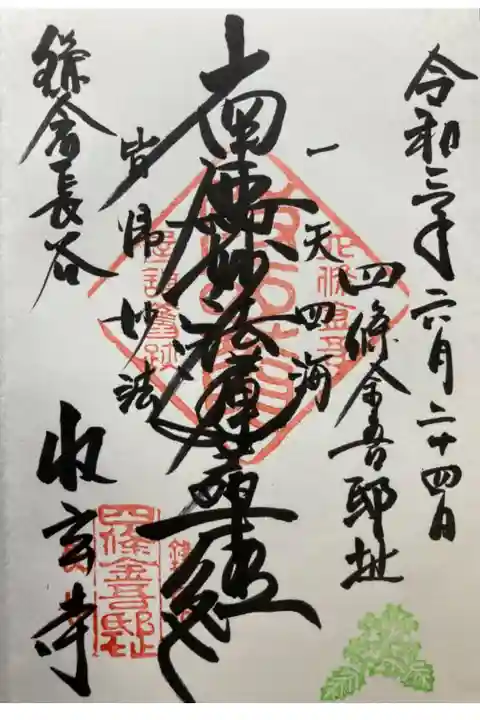 令和三年六月二十四日
四條金吾邸址
一天四海
南無妙法蓮華経
皆帰妙法
鎌倉長谷
収玄寺
四條金吾邸址